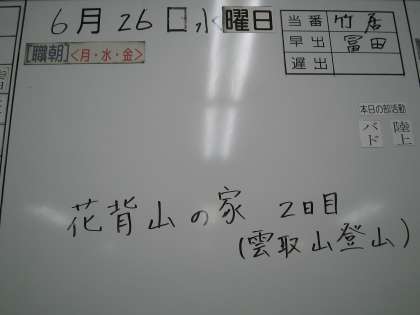 6月26日水曜日
[職朝]<月・水・金>
当番 竹居
早出 冨田
遅出
本日の部活動
バド 陸上
花背山の家 2日目
(雲取山登山)